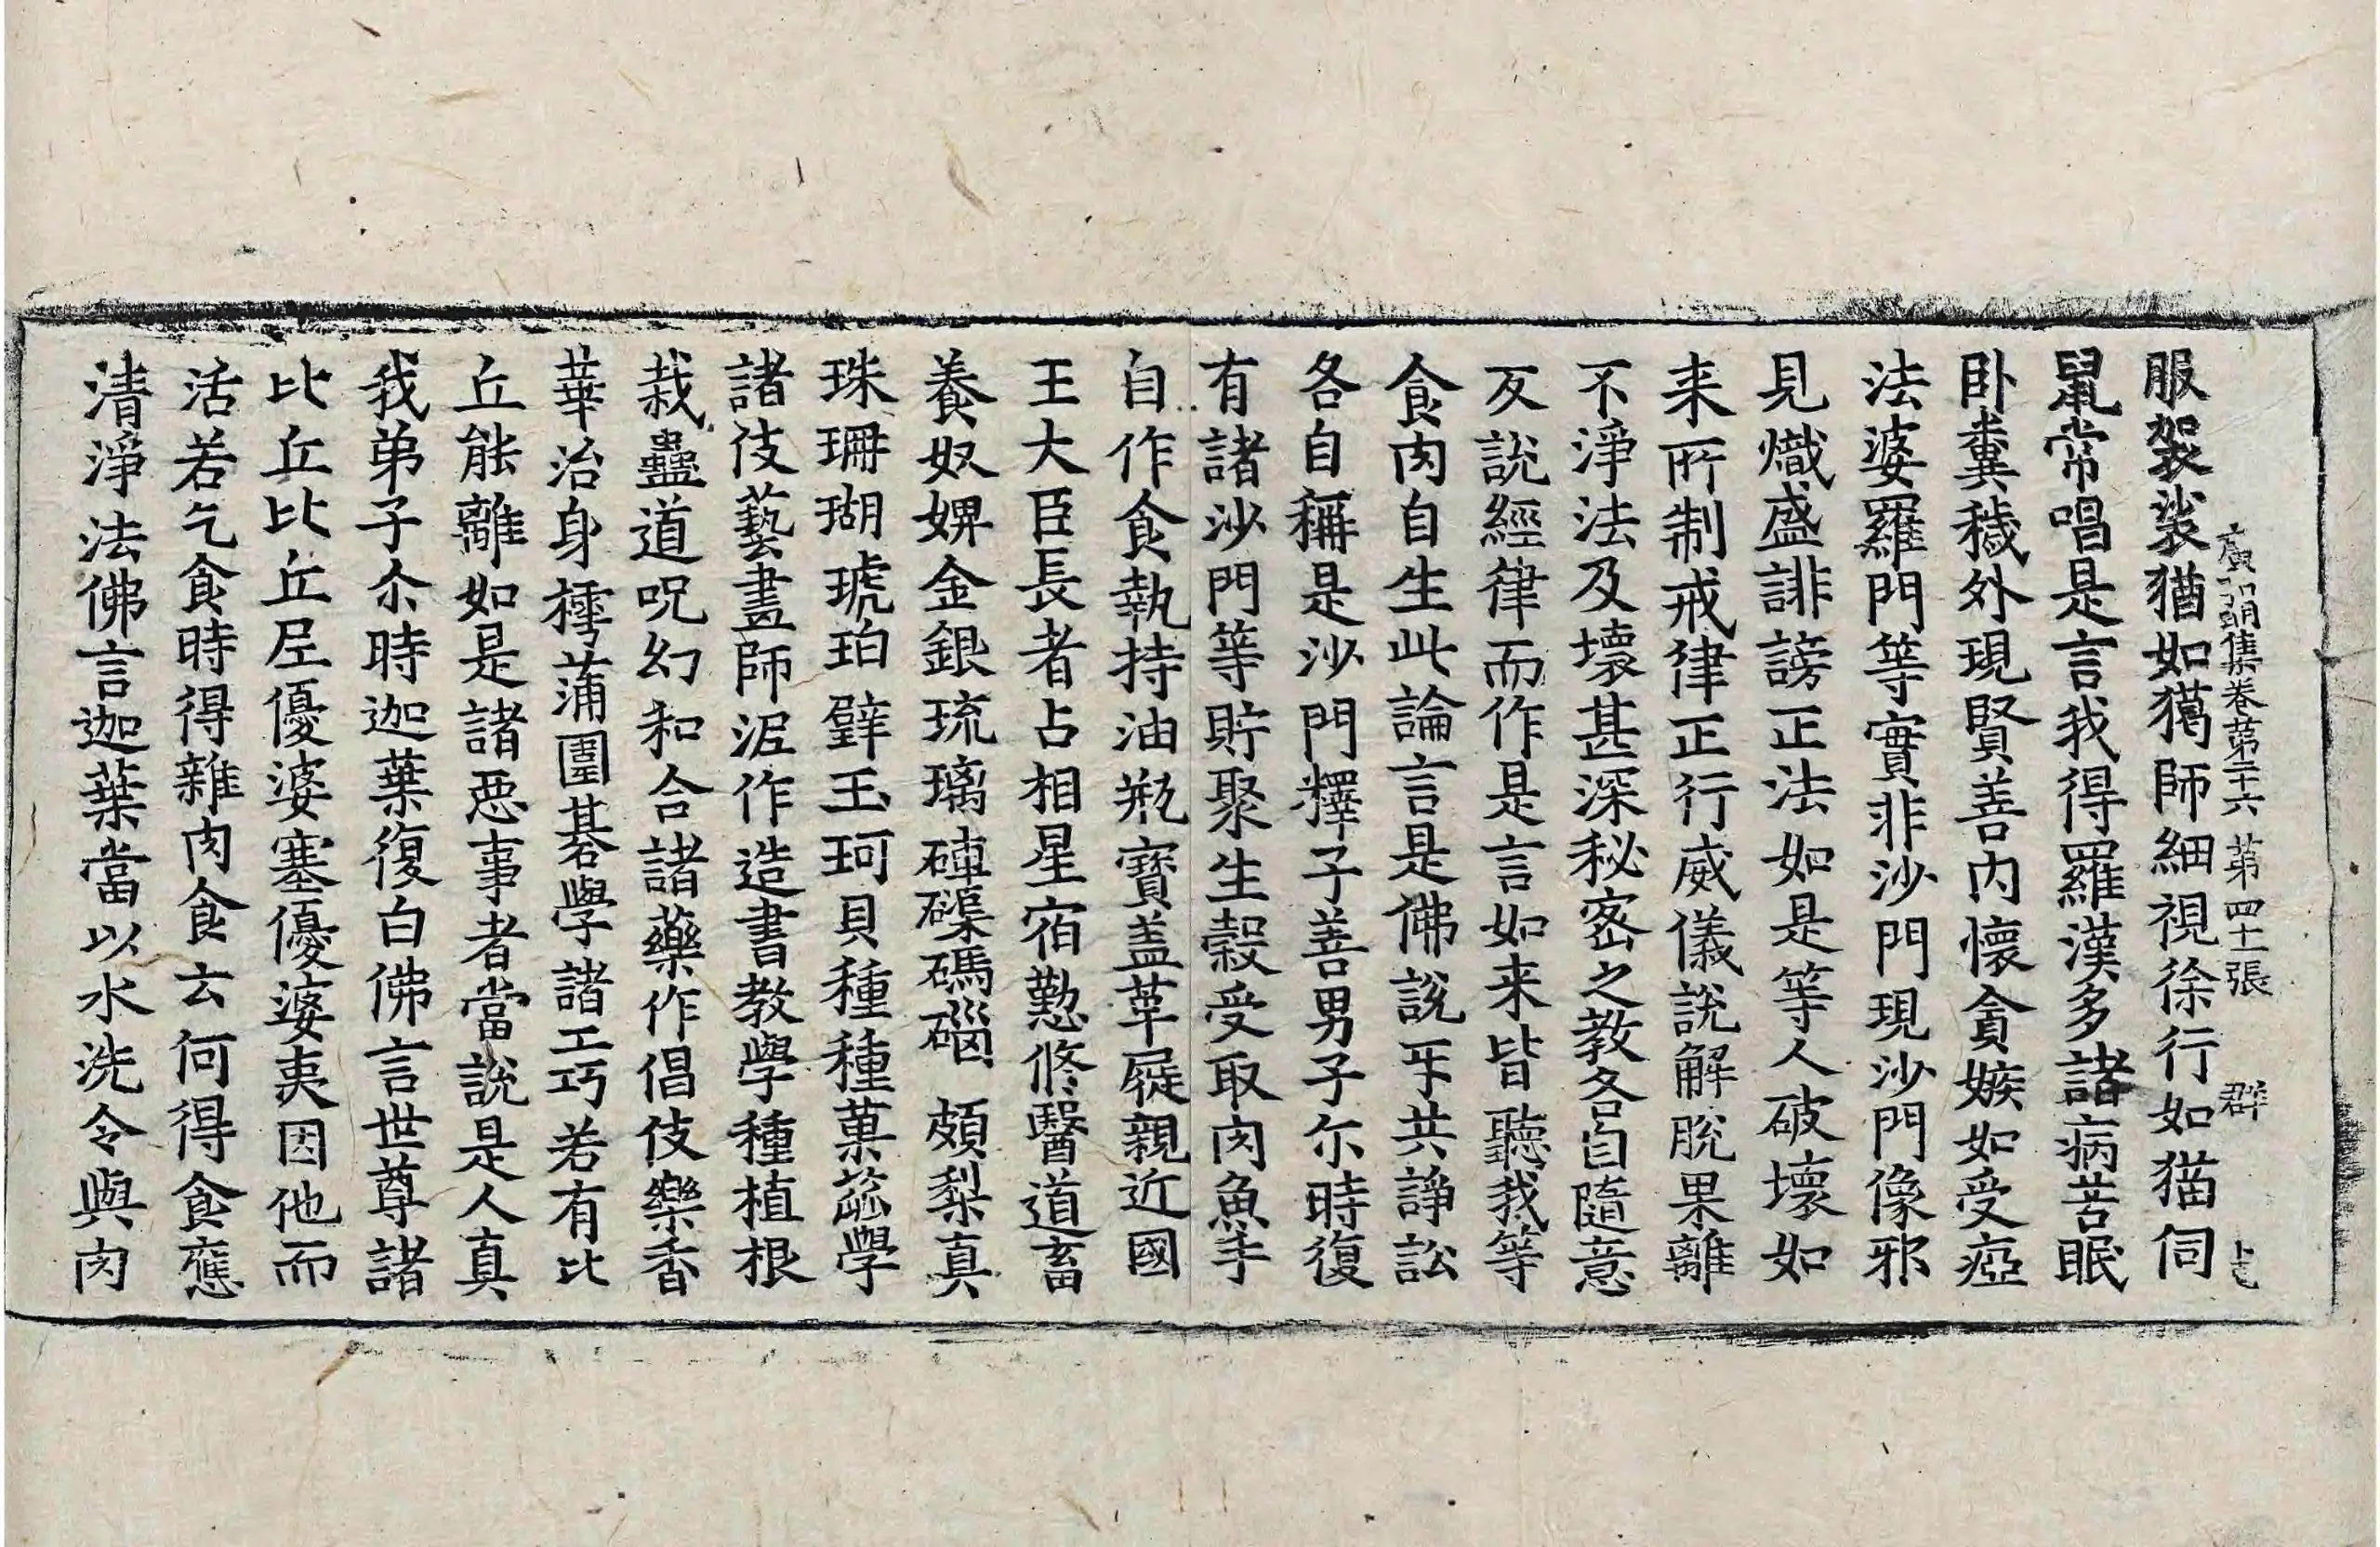 廣弘明集卷第二十六 第四十二張 群
服袈裟猶如獦師細視徐行如猫伺
鼠常唱是言我得羅漢多諸病苦眠
卧糞穢外現賢善内懷貪嫉如受瘂
法婆羅門等實非沙門現沙門像邪
見熾盛誹謗正法如是等人破壞如
来所制戒律正行威儀說解脫果離
不淨法及壞甚深秘密之教各自隨意
反說經律而作是言如来皆聽我等
食肉自生此論言是佛說㸦共諍訟
各自稱是沙門釋子善男子尒時復
有諸沙門等貯聚生穀受取肉魚手
自作食執持油瓶寶盖革屣親近國
王大臣長者占相星宿懃脩醫道畜
養奴婢金銀琉璃硨磲碼碯頗梨真
珠珊瑚琥珀璧玉珂貝種種菓蓏學
諸伎藝畫師泥作造書教學種植根
栽蠱道呪幻和合諸藥作倡伎樂香
華治身樗蒲圍碁學諸工巧若有比
丘能離如是諸惡事者當說是人真
我弟子尒時迦葉復白佛言世尊諸
比丘比丘尼優婆塞優婆夷因他而
活若乞食時得雜肉食云何得食應
清淨法佛言迦葉當以水洗令與肉